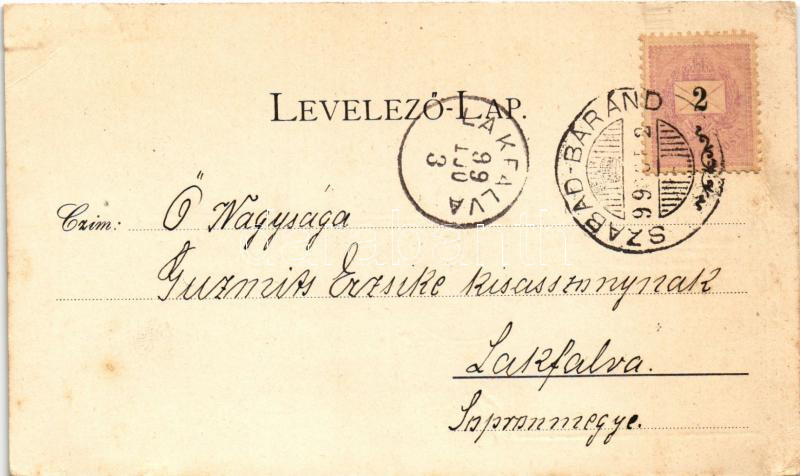 LEVELEZŐ-LAP.
2
SZABAD-BARÁND
99
2
LAKFALVA
99
3
Czim: Ő Nagysága
Guzmits Erzsike kisasszonynak
Lakfalva.
Sopronmegye.